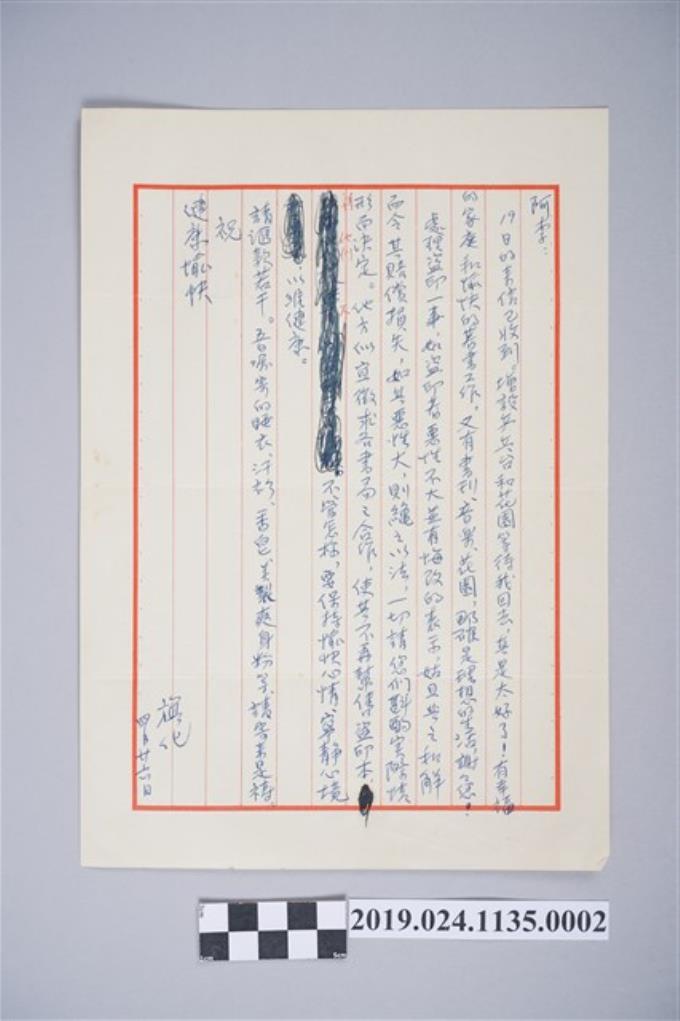 阿李：
19日的來信已收到。增設乒乓台和花園等待我回去，真是太好了！有幸福
的家庭和愉快的著書工作，又有書刊、音樂、花園，那確是理想的生活，謝謝您！
處理盜印一事，如盜印者惡性不大並有悔改的表示，姑且與之和解
而令其賠償損失，如其惡性大，則繩之以法，一切請您們斟酌實際情
形而決定。他方似宜徵求各書局之合作，使其不再幫售盜印本，
不管怎樣，要保持愉快心情、寧靜心境
，以維健康。
請匯款若干。吾囑寄的睡衣、汗衫、香皂、美製爽身粉等，請寄來是禱。
祝
健康愉快
旗化
四月廿六日
2019.024.1135.0002